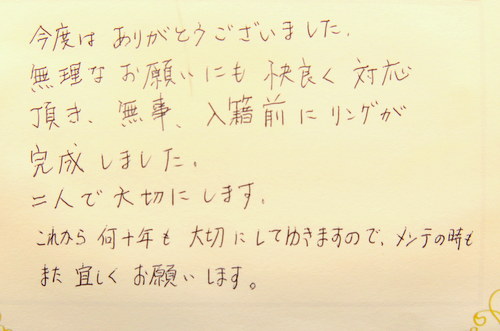 今度は ありがとうございました.
無理な お願いにも 快良く 対応
頂き、無事、入籍前に リングが
完成しました.
二人で 大切にします.
これから 何十年も 大切にしてゆきますので、メンテの時も
また 宜しく お願いします。